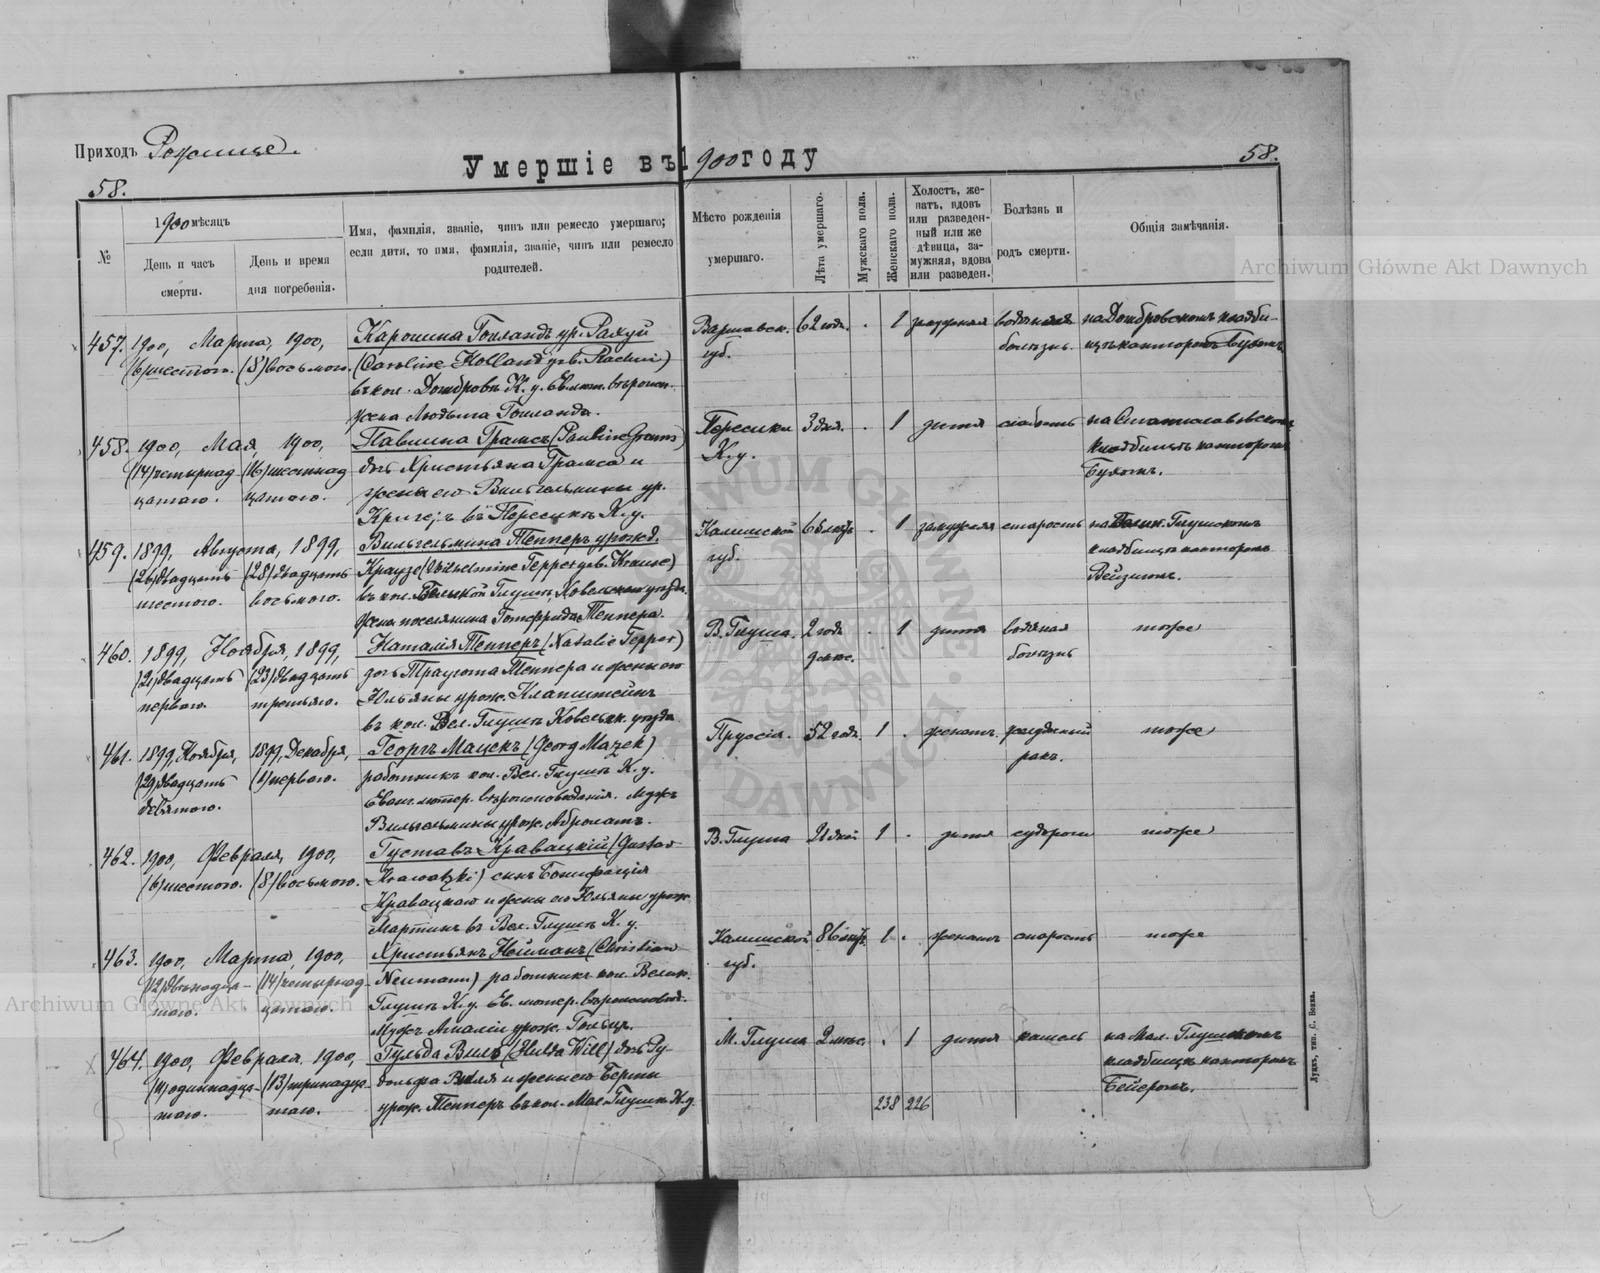 Приходъ Рожище.
Умершіе въ 1900 году
58.
58.
№
1900 мѣсяцъ
День и часъ
смерти.
День и время
дня погребенія.
Имя, фамилія, званіе, чинъ или ремесло умершаго;
если дитя, то имя, фамилія, званіе, чинъ или ремесло
родителей.
Мѣсто рожденія
умершаго.
Лѣта умершаго.
Мужскаго пола.
Женскаго пола.
Холостъ, же-
натъ, вдовъ
или разведен-
ный или же
дѣвица, за-
мужняя, вдова
или разведен.
Болѣзнь и
родъ смерти.
Общія замѣчанія.
457. 1900, Марта, 1900,
(6) шестого. (8) восьмого.
Каролина Голландъ ур. Рахуй
(Caroline Holland geb. Rachui)
въ кол. Домбровѣ К. у. Ев. лют. вѣроисп.
жена Людвига Голланда.
Варшавск.
губ.
62 года. . 1 замужняя
водяная
болѣзнь.
на Домбровскомъ кладби-
щѣ канторомъ Бухомъ
458. 1900, Мая, 1900,
(14) четырнад (16) шестнад
цатаго. цатаго.
Павлина Грамсъ (Pauline Grams)
дочь Христьяна Грамса и
жены его Вильгельмины ур.
Кригеръ въ Пересикѣ К. у.
Пересика
К. у.
3 дня. . 1 дитя слабость
на Станиславовскомъ
кладбищѣ канторомъ
Бухомъ.
459. 1899, Августа, 1899,
(26) двадцать (28) двадцать
шестого. восьмого.
Вильгельмина Тепперъ урожд.
Краузе (Wilhelmine Tepper geb. Krause)
въ кол. Великой Глушѣ, Ковельскаго уѣзда.
Жена поселянина Готфрида Теппера.
Калишской
губ.
65 лѣтъ . 1 замужняя старость
на Велик. Глушскомъ
кладбищѣ канторомъ
Вейзигомъ.
460. 1899, Ноября, 1899,
(21) двадцать (23) двадцать
перваго. третьяго.
Наталія Тепперъ (Natalie Tepper)
дочь Траугота Теппера и жены его
Юльяны урож. Клапштейнъ
въ кол. Вел. Глушѣ Ковельск. уѣзда
В. Глуша. 2 года
9 мѣс.
. 1 дитя
водяная
болѣзнь
тоже
461. 1899, Ноября, 1899, Декабря,
(29) двадцать (1) перваго.
девятого.
Георгъ Мацекъ (Georg Mazek)
работникъ кол. Вел. Глушѣ К. у.
Еванг. лютер. вѣроисповѣданія. Мужъ
Вильгельмины урож. Абролатъ.
Пруссія. 52 года. 1 . женатъ.
желудочный
ракъ.
тоже
462. 1900, Февраля, 1900,
(6) шестого. (8) восьмого.
Густавъ Кравацкій (Gustav
Krawatzki) сынъ Бонифація
Кравацкаго и жены его Юльяны урож.
Мартинъ въ Вел. Глушѣ К. у.
В. Глуша 21 дней 1 . дитя судороги тоже
463. 1900, Марта, 1900,
(12) двѣнадца- (14) четырнад-
таго. цатаго.
Христьянъ Нейманъ (Christian
Neumann) работникъ кол. Велик.
Глушѣ К. у. Ев. лютер. вѣроисповѣд.
Мужъ Амаліи урож. Гольцъ.
Калишской
губ.
86 лѣтъ. 1 . женатъ старость тоже
464. 1900, Февраля, 1900,
(11) одиннадца- (13) тринадца-
таго. таго.
Гульда Виль (Hulda Will) дочь Ру-
дольфа Виля и жены его Берты
урож. Тепперъ въ кол. Мал. Глушѣ К. у.
М. Глуша 2 мѣс. . 1 дитя кашель
на Мал. Глушскомъ
кладбищѣ канторомъ
Бейеромъ.
238 226
Луцкъ, тип. С. Бонка.
Archiwum Główne Akt Dawnych
Archiwum Główne Akt Dawnych
ARCHIWUM GŁÓWNE AKT DAWNYCH